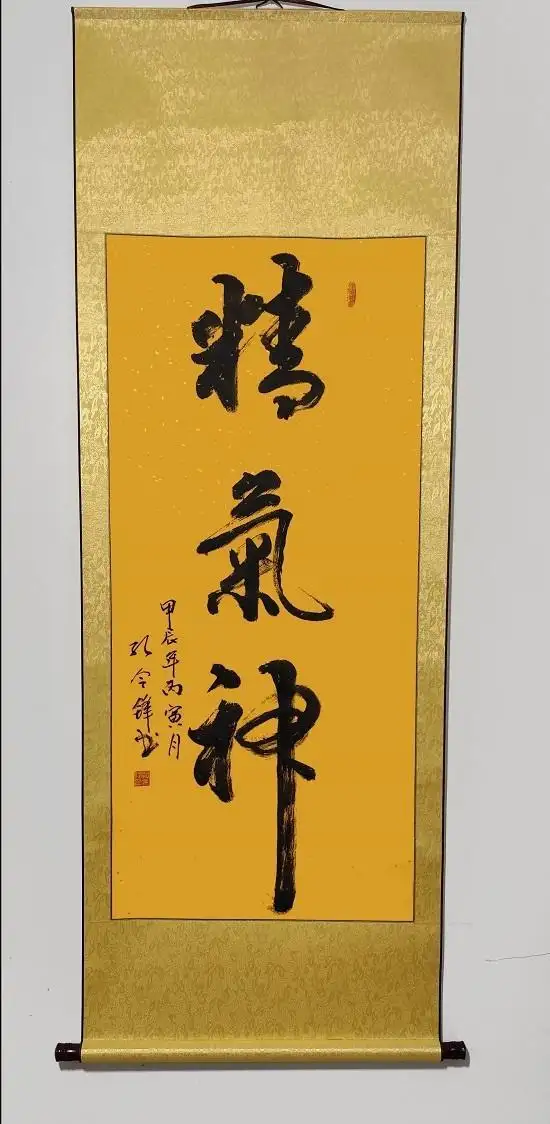 精氣神
甲辰年丙寅月
孔令鋒书